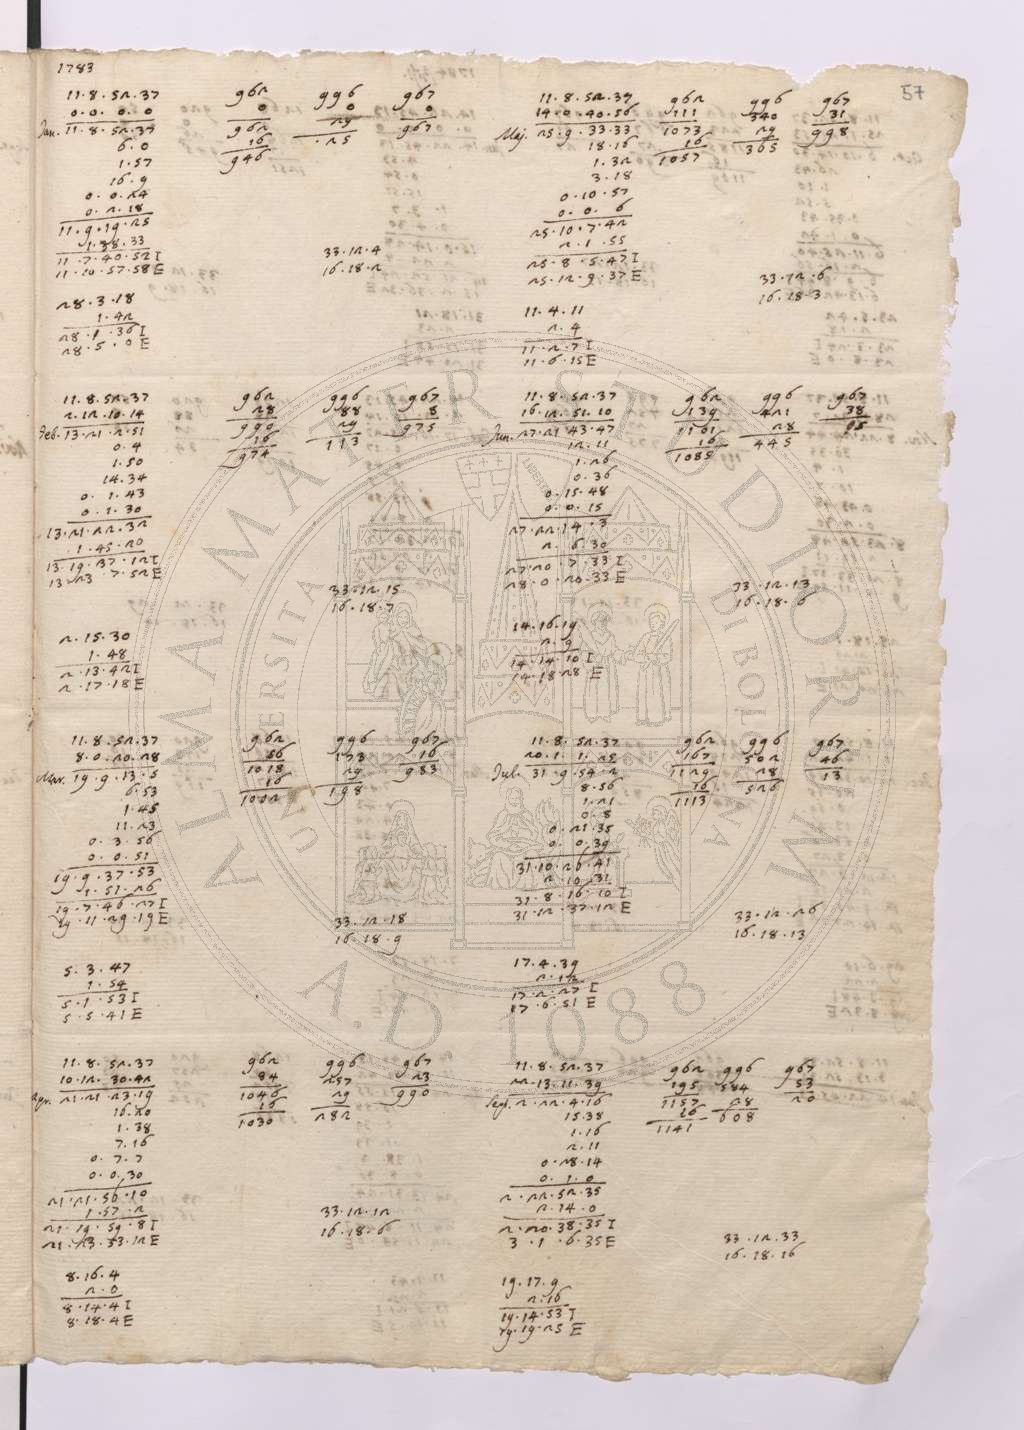 1783
57
11.8.52.37
0.0.0.0
Jan. 11.8.52.37
6.0
1.57
16.9
0.0.24
0.2.18
11.9.19.25
1.38.33
11.7.40.52 I
11.10.57.58 E
962
0
962
16
946
996
0
29
.25
967
0
967
33.12.4
16.18.2
28.3.18
1.42
28.1.36 I
28.5.0 E
11.8.52.37
2.12.10.14
Feb. 13.21.2.51
0.4
1.50
14.34
0.1.43
0.1.30
13.21.22.32
1.45.20
13.19.37.12 I
13.23.7.52 E
962
28
990
16
974
996
88
29
113
967
8
975
33.12.15
16.18.7
2.15.30
1.48
2.13.42 I
2.17.18 E
11.8.52.37
8.0.20.28
Mar. 19.9.13.5
6.53
1.45
11.23
0.3.56
0.0.51
19.9.37.53
1.51.26
19.7.46.27 I
19.11.29.19 E
962
56
1018
16
1002
996
173
29
198
967
16
983
33.12.18
16.18.9
5.3.47
1.54
5.1.53 I
5.5.41 E
11.8.52.37
10.12.30.42
Apr. 21.21.23.19
16.20
1.38
7.16
0.7.7
0.0.30
21.21.56.10
1.57.2
21.19.59.8 I
21.23.53.12 E
962
84
1046
16
1030
996
257
29
282
967
23
990
33.12.12
16.18.6
8.16.4
2.0
8.14.4 I
8.18.4 E
11.8.52.37
14.0.40.56
Maj. 25.9.33.33
18.16
1.32
3.18
0.10.57
0.0.6
25.10.7.42
2.1.55
25.8.5.47 I
25.12.9.37 E
962
111
1073
16
1057
996
340
29
365
967
31
998
33.12.6
16.18.3
11.4.11
2.4
11.2.7 I
11.6.15 E
11.8.52.37
16.12.51.10
Jun. 27.21.43.47
12.11
1.26
0.36
0.15.48
0.0.15
27.22.14.3
2.6.30
27.20.7.33 I
28.0.20.33 E
962
139
1101
16
1085
996
421
28
445
967
38
05
33.12.13
16.18.6
14.16.19
2.9
14.14.10 I
14.18.28 E
11.8.52.37
20.1.1.25
Jul. 31.9.54.2
8.56
1.21
0.8
0.21.35
0.0.39
31.10.26.41
2.10.31
31.8.16.10 I
31.12.37.12 E
962
167
1129
16
1113
996
502
28
526
967
46
13
33.12.26
16.18.13
17.4.39
2.12
17.2.27 I
17.6.51 E
11.8.52.37
22.13.11.39
Sept. 2.22.4.16
15.38
1.16
2.11
0.28.14
0.1.0
2.22.52.35
2.14.0
2.20.38.35 I
3.1.6.35 E
962
195
1157
16
1141
996
584
28
608
967
53
20
33.12.33
16.18.16
19.17.9
2.16
19.14.53 I
19.19.25 E